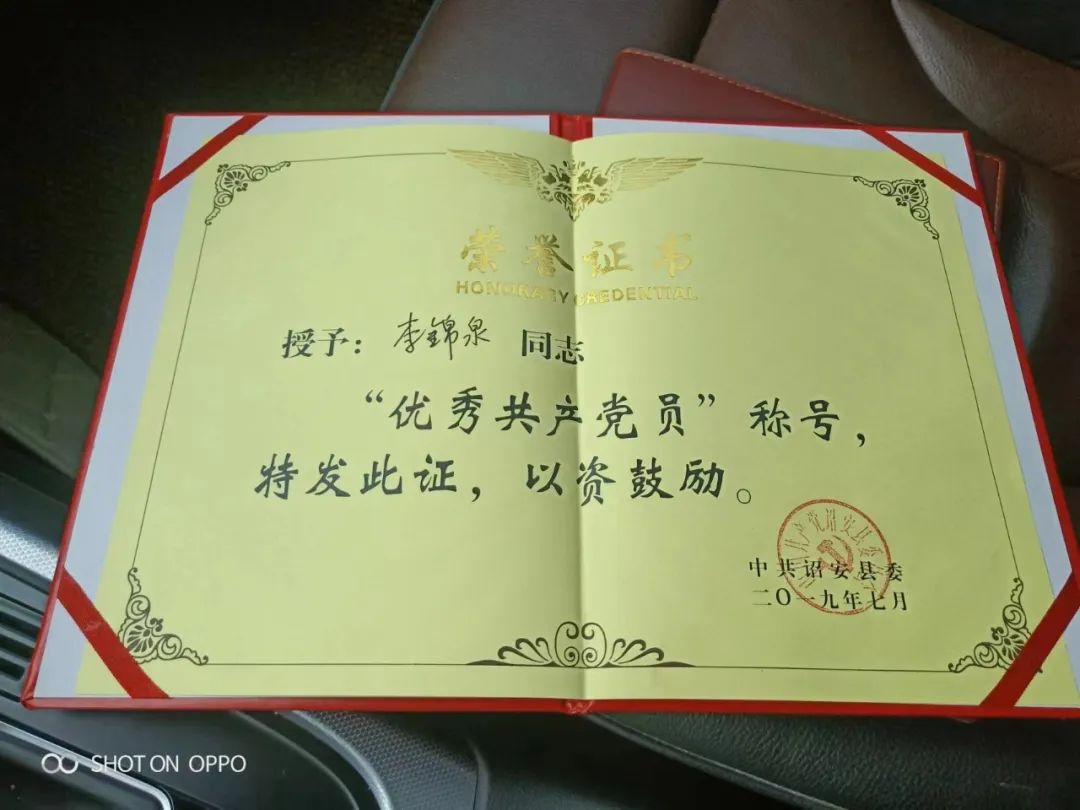 荣誉证书
HONORARY CREDENTIAL
授予：李锦泉 同志
“优秀共产党员”称号，
特发此证，以资鼓励。
中共诏安县委
二〇一九年七月
SHOT ON OPPO